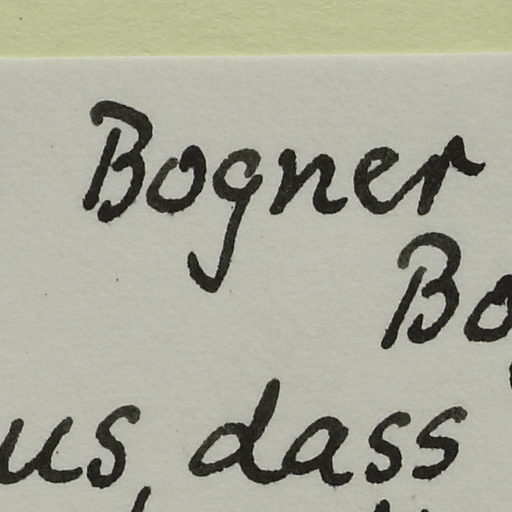 Bogner
Bo
us, dass